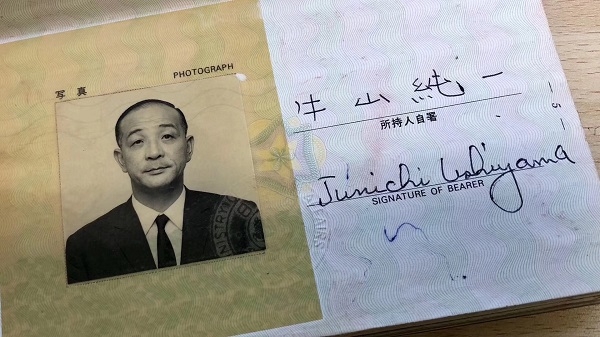 写真
PHOTOGRAPH
牛山純一
所持人自署
Junichi Ushiyama
SIGNATURE OF BEARER
- 5 -